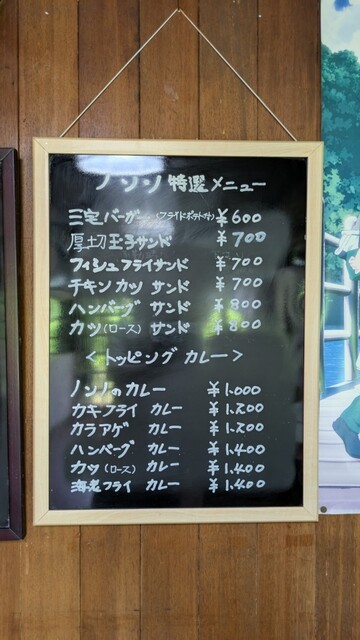 ノンノ 特選メニュー
三宅バーガー(フライドポテト付) ¥600
厚切玉子サンド ¥700
フィシュフライサンド ¥700
チキンカツ サンド ¥700
ハンバーグ サンド ¥800
カツ(ロース) サンド ¥800
<トッピング カレー>
ノンノのカレー ¥1,000
カキフライ カレー ¥1,200
カラアゲ カレー ¥1,200
ハンバーグ カレー ¥1,400
カツ(ロース) カレー ¥1,400
海老フライ カレー ¥1,400